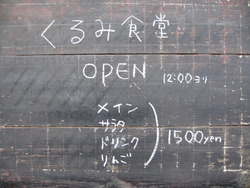 くるみ食堂
OPEN 12:00ヨリ
メイン
サラダ
ドリンク
りんご
1500yen